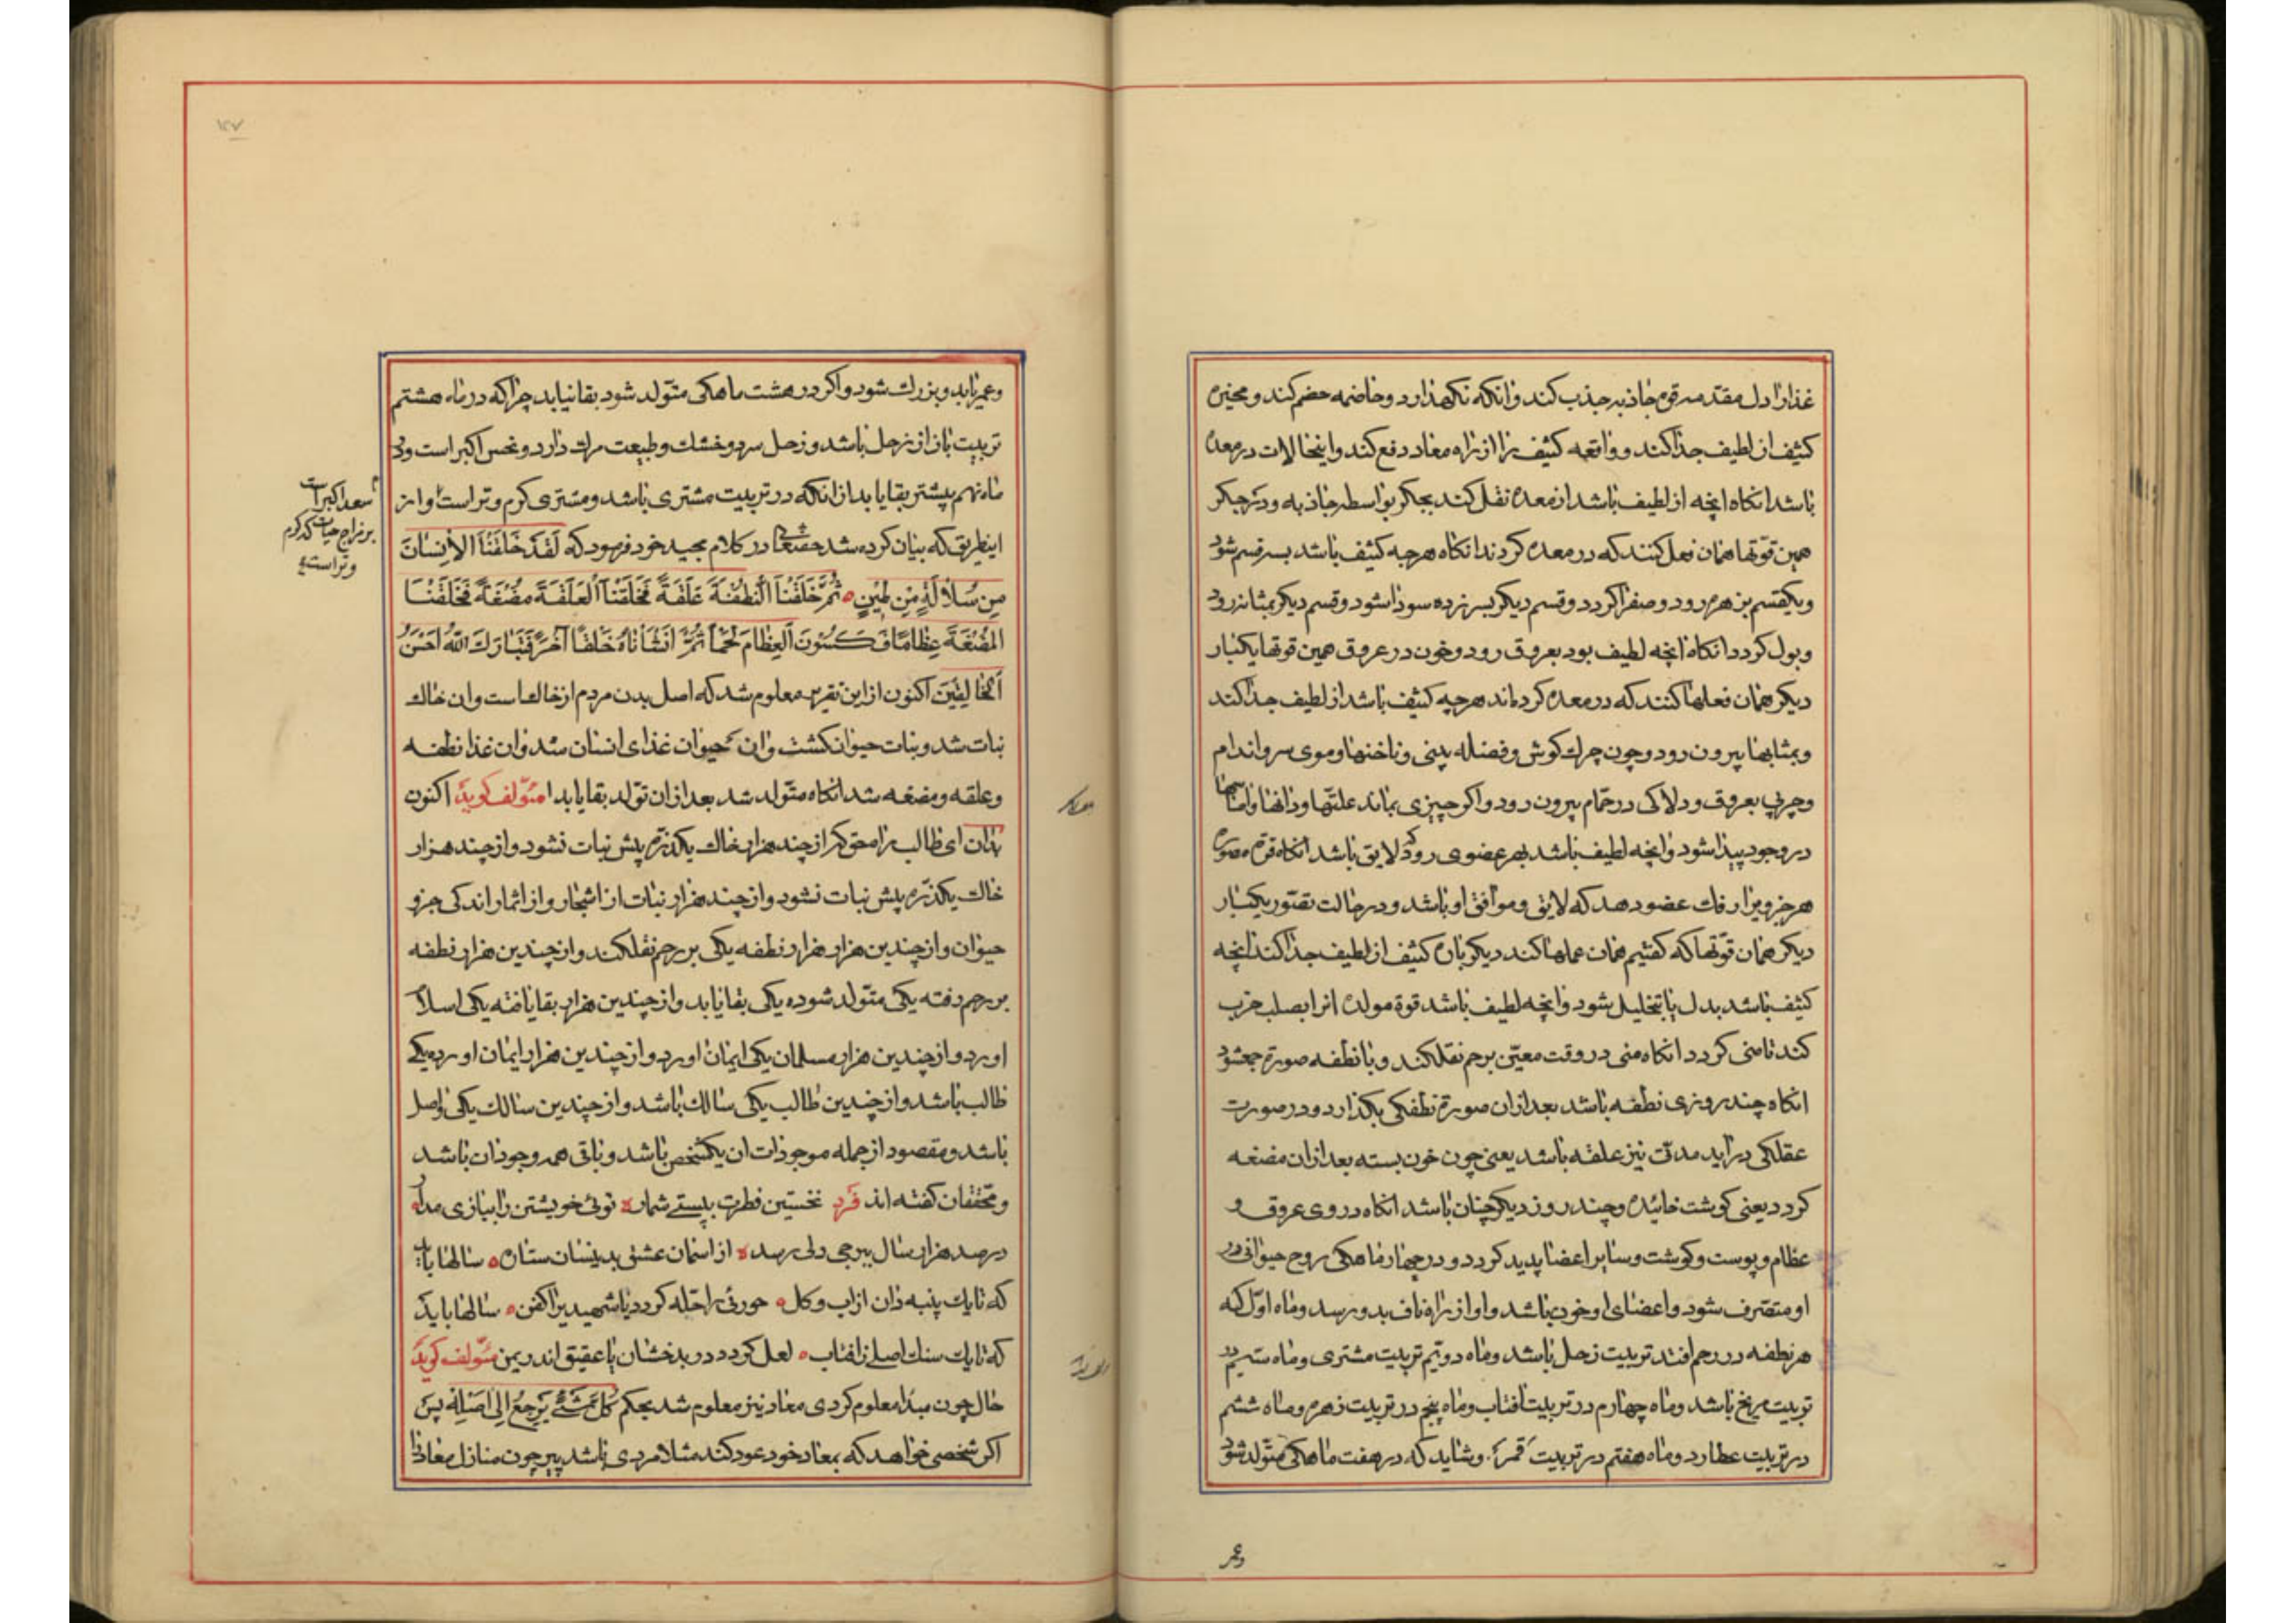 غذارا دل مقدمه قوه جاذبه جذب کند وانکه نکهدارد وهاضمه هضم کند ومميزه
کثیف از لطیف جدا کند و واقعه کثیف را از راه معتاد دفع کند واینحالات در معده
باشد انکاه انچه از لطیف باشد از معده نقل کند بجکر بواسطه جاذبه ودر جکر
همین قوتها همان فعل کنند که در معده کردند انکاه هرچه کثیف باشد بسه قسم شود
ویکقسم بزهره رود وصفرا کردد وقسم دیکر بسپرز ده سودا شود وقسم دیکر بمثانه رود
وبول کردد انکاه انچه لطیف بود بعروق رود وخون در عروق همین قوتها یکبار
دیکر همان فعلها کنند که در معده کرده‌اند هرچه کثیف باشد از لطیف جدا کند
وبمثابها بیرون رود وچون چرك کوش وفضله بینی وناخنها وموی سر واندام
وچربی بعروق ودلاکی در حمام بیرون رود واکر چیزی بماند علتها ودانها واماسها
در وجود پیدا شود وانچه لطیف باشد بهر عضوی رود که لایق باشد انکاه قوه مصوره
هر جزویرا رنك عضو دهد که لایق وموافق او باشد ودر حالت تصور یکبار
دیکر همان قوتها که کفتیم همان عملها کند دیکر باره کثیف از لطیف جدا کند انچه
کثیف باشد بدل یا تحلیل شود وانچه لطیف باشد قوة مولده انرا بصلب جذب
کند تا منی کردد انکاه منی در وقت معین برحم نقل کند وبا نطفه صورة جمع شود
انکاه چند روزی نطفه باشد بعد از ان صورة نطفکی بکذارد ودر صورت
علقکی در اید مدتی نیز علقه باشد یعنی چون خون بسته بعد از ان مضغه
کردد یعنی کوشت خائیده وچند روز دیکر چنان باشد انکاه در وی عروق و
عظام وپوست وکوشت وسایر اعضا پدید کردد ودر چهار ماهکی روح حیوانی در
او متصرف شود واعضای او خون باشد واو از راه ناف بدو رسد وماه اول که
هر نطفه در رحم افتد تربیت زحل باشد وماه دویم تربیت مشتری وماه سیم در
تربیت مریخ باشد وماه چهارم در تربیت افتاب وماه پنجم در تربیت زهره وماه ششم
در تربیت عطارد وماه هفتم در تربیت قمر وشاید که در هفت ماهکی متولد شود
وعمر
وعمر یابد وبزرك شود واکر در هشت ماهکی متولد شود بقا نیابد چرا که در ماه هشتم
تربیت باز از زحل باشد وزحل سرد وخشك وطبیعت مرك دارد ونحس اکبر است ودر
ماه نهم پیشتر بقا یابد از انکه در تربیت مشتری باشد ومشتری کرم وتر است واز
سعد اکبر است
بر مزاج حیات که کرم
وتر است
اینطریق که بیان کرده شد حقتعالی در کلام مجید خود فرمود که لَقَدْ خَلَقْنَا الْاِنْسٰانَ
مِن سُلاٰلَةٍ مِن طِیْنٍ ثُمَّ خَلَقْنَا النُّطْفَةَ عَلَقَةً فَخَلَقْنَا الْعَلَقَةَ مُضْغَةً فَخَلَقْنَا
المُضْغَةَ عِظٰامًا فَکَسَوْنَ العِظٰامَ لَحْمًا ثُمَّ انْشَاْنٰاهُ خَلْقًا آخَرَ فَتَبٰارَكَ اللّٰهُ اَحْسَنُ
اَلْخٰالِقِیْنَ اکنون از این تقریر معلوم شد که اصل بدن مردم از خاك است وان خاك
نبات شد ونبات حیوان کشت وان حیوان غذای انسان شد وان غذا نطفه
وعلقه ومضغه شد انکاه متولد شد بعد از ان تولد بقا یابد مؤلف کوید اکنون
بدان ای طالب راه حق که از چند هزار خاك یکذره پیش نبات نشود واز چند هزار
خاك یکذره پیش نبات نشود واز چند هزار نبات از اشجار واز اثمار اندکی جزو
حیوان واز چندین هزار هزار نطفه یکی بر رحم نقل کند واز چندین هزار نطفه
بر رحم رفته یکی متولد شوده یکی بقا یابد واز چندین هزار بقا یافته یکی اسلام
اورد واز چندین هزار مسلمان یکی ایمان اورد واز چندین هزار ایمان اورده یکی
طالب باشد واز چندین طالب یکی سالك باشد واز چندین سالك یکی واصل
باشد ومقصود از جمله موجودات ان یکشخص باشد وباقی همه وجود ان باشد
ومحققان کفته اند فرد نخستین فطرت پسین شمار توئی خویشتن را ببازی مدار
در صد هزار سال ببرجی دلی رسد از اسمان عشق بدینسان ستاره سالها باید
که تا یك پنبه دان از اب وکل حورئی را حله کردد یا شهیدیرا کفن سالها باید
که تا یك سنك اصلی ز افتاب لعل کردد در بدخشان یا عقیق اندر یمن مؤلف کوید
حال چون مبدا معلوم کردی معاد نیز معلوم شد بحکم کُلُّ شَیْئٍ یَرْجِعُ اِلٰی اَصْلِهِ پس
اکر شخصی خواهد که بمعاد خود عود کند مثلا مردی باشد پیر چون منازل معاد